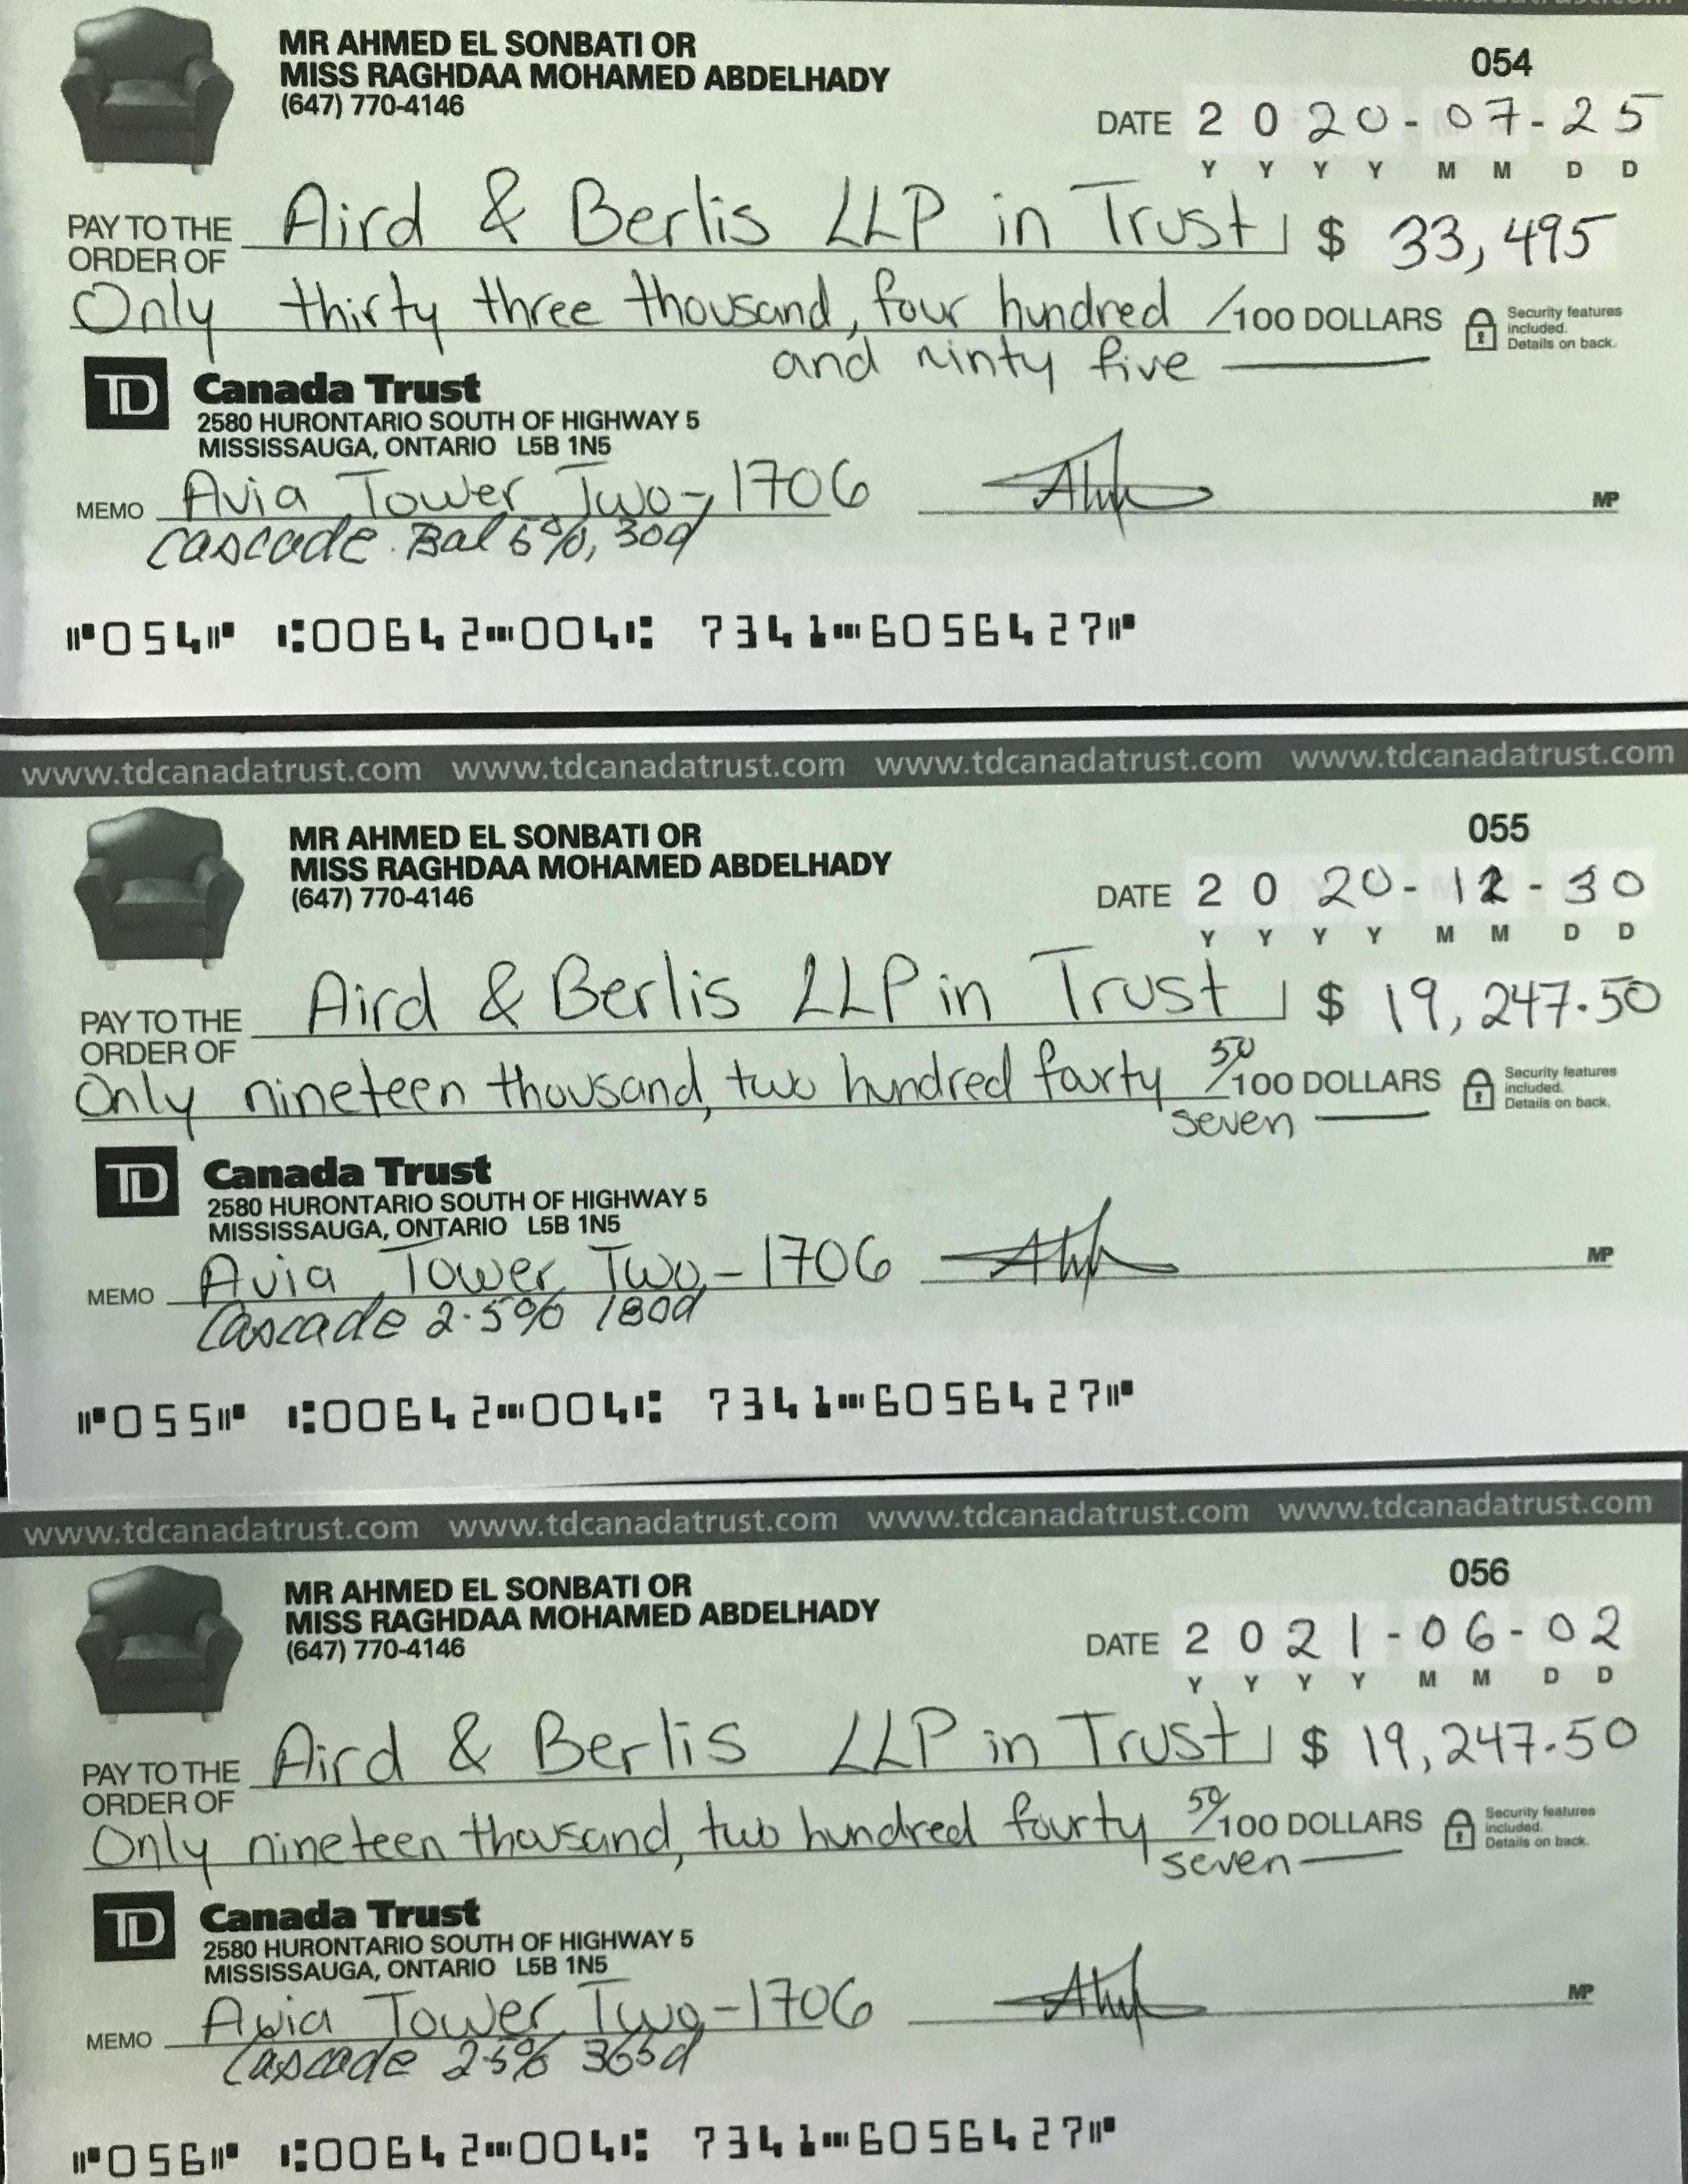 MR AHMED EL SONBATI OR
MISS RAGHDAA MOHAMED ABDELHADY
(647) 770-4146
054
DATE 2020-07-25
Y Y Y Y M M D D
PAY TO THE ORDER OF Aird & Berlis LLP in Trust $ 33,495
Only thirty three thousand, four hundred /100 DOLLARS
Security features included. Details on back.
and ninty five
TD Canada Trust
2580 HURONTARIO SOUTH OF HIGHWAY 5
MISSISSAUGA, ONTARIO L5B 1N5
MEMO Avia Tower Two-1706
MP
Cascade Bal 5%, 30d
⑈054⑈ ⑆00642⑉004⑆ 7341⑉6056427⑈
www.tdcanadatrust.com www.tdcanadatrust.com www.tdcanadatrust.com www.tdcanadatrust.com
MR AHMED EL SONBATI OR
MISS RAGHDAA MOHAMED ABDELHADY
(647) 770-4146
055
DATE 2020-12-30
Y Y Y Y M M D D
PAY TO THE ORDER OF Aird & Berlis LLP in Trust $ 19,247.50
Only nineteen thousand, two hundred farty 50/100 DOLLARS
Security features included. Details on back.
seven
TD Canada Trust
2580 HURONTARIO SOUTH OF HIGHWAY 5
MISSISSAUGA, ONTARIO L5B 1N5
MEMO Avia Tower Two-1706
MP
Cascade 2.5% 180d
⑈055⑈ ⑆00642⑉004⑆ 7341⑉6056427⑈
www.tdcanadatrust.com www.tdcanadatrust.com www.tdcanadatrust.com www.tdcanadatrust.com
MR AHMED EL SONBATI OR
MISS RAGHDAA MOHAMED ABDELHADY
(647) 770-4146
056
DATE 2021-06-02
Y Y Y Y M M D D
PAY TO THE ORDER OF Aird & Berlis LLP in Trust $ 19,247.50
Only nineteen thousand, two hundred fourty 50/100 DOLLARS
Security features included. Details on back.
seven
TD Canada Trust
2580 HURONTARIO SOUTH OF HIGHWAY 5
MISSISSAUGA, ONTARIO L5B 1N5
MEMO Avia Tower Two-1706
MP
Cascade 2.5% 365d
⑈056⑈ ⑆00642⑉004⑆ 7341⑉6056427⑈